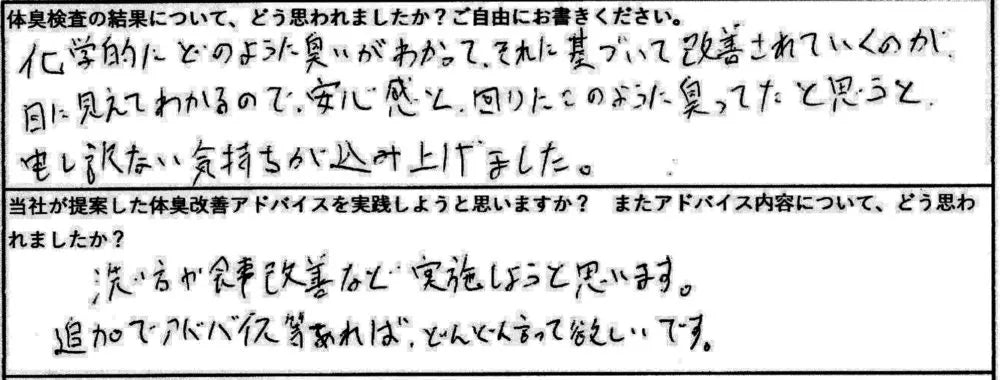 体臭検査の結果について、どう思われましたか？ご自由にお書きください。
化学的にどのような臭いがわかって、それに基づいて改善されていくのが、
目に見えてわかるので、安心感と、回りにこのような臭ってたと思うと、
申し訳ない気持ちが込み上げました。
当社が提案した体臭改善アドバイスを実践しようと思いますか？　またアドバイス内容について、どう思わ
れましたか？
洗い方か食事改善など実施しようと思います。
追加でアドバイス等あれば、どんどん言って欲しいです。